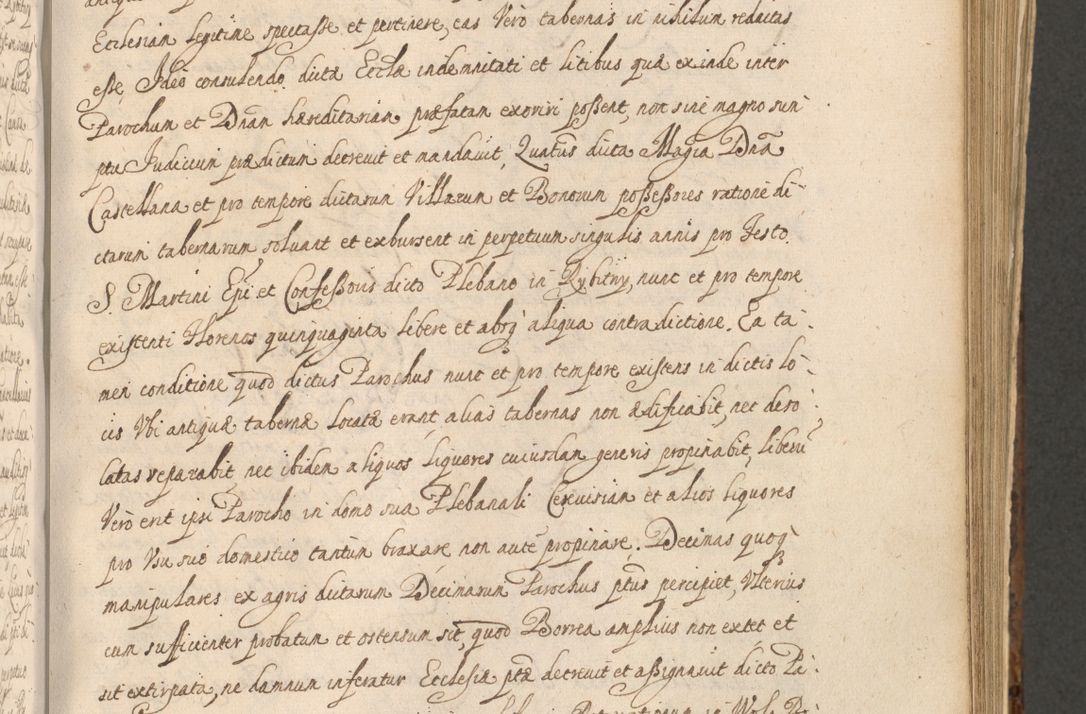 Ecclesiam legitime spectasse et pertinere, eas Vero tabernas in nihilum redactas
esse, Ideo consulendo dictæ Ecclæ indemnitati et litibus quæ exinde inter
Parochum et Dnam hæreditariam præfatam exoriri possent, non sine magno sum
ptu Judicium prædictum decrevit et mandavit, Quatus dicta Magca Dna
Castellana et pro tempore dictarum Villarum et Bonorum possessores ratione di-
ctarum tabernarum solvant et exbursent in perpetuum singulis annis pro Festo
S. Martini Epi et Confessoris dicto Plebano in Rybitwy, nunc et pro tempore
existenti Florenos quinquaginta libere et absq aliqua contradictione. Ea ta-
men conditione quod dictus Parochus nunc et pro tempore existens in dictis lo-
cis Vbi antiquæ tabernæ locatæ erant alias tabernas non ædificabit, nec deso
latas reparabit, nec ibidem aliquos liquores cujusdam generis propinabit, liberu
Vero erit ipsi Parocho in domo sua Plebanali Cerevisiam et alios liquores
pro Vsu suo domestico tantum braxare non aute propinare. Decimas quoq
manipulares ex agris dictarum Decimarum Parochus ptus percipiet, Vlterius
cum sufficienter probatum et ostensum sit, quod Borrea amplius non extet et
sit extirpata, ne damnum inferatur Ecclesiæ ptæ decrevit et assignavit dicto Pa-